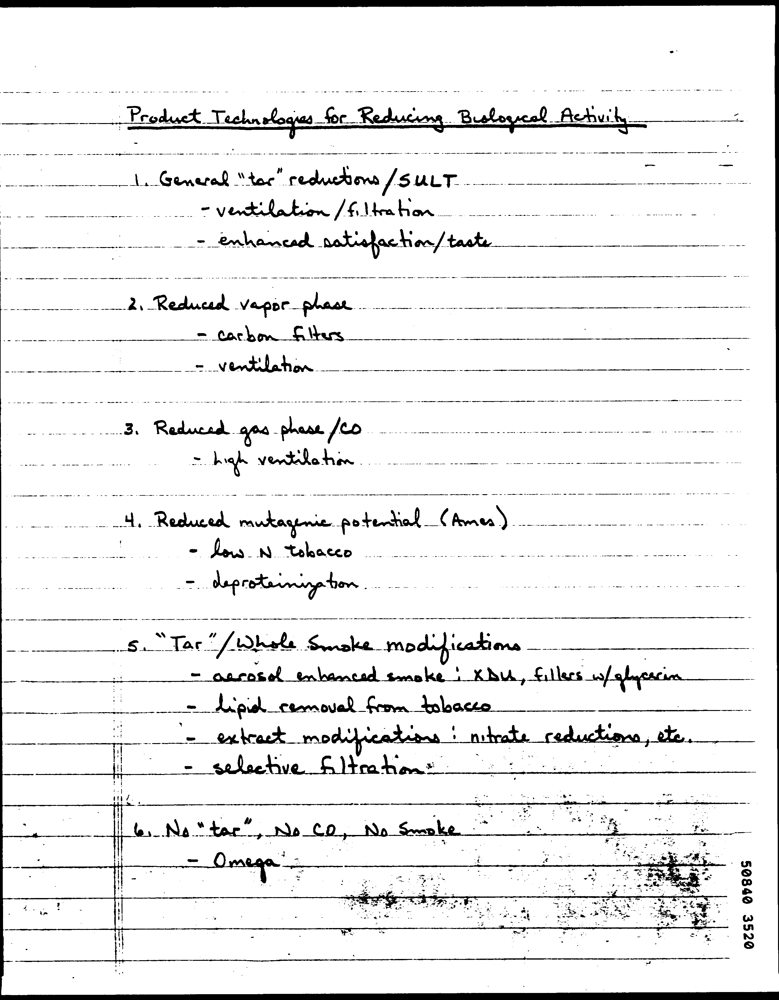 Product Technologies for Reducing Biological Activity
1. General "tar" reductions / SULT
- ventilation / filtration
- enhanced satisfaction / taste
2. Reduced vapor phase
- carbon filters
- ventilation
3. Reduced gas phase / CO
- high ventilation
4. Reduced mutagenic potential (Ames)
- low N tobacco
- deproteinization
5. "Tar" / Whole Smoke modifications
- aerosol enhanced smoke : XDU, fillers w/ glycerin
- lipid removal from tobacco
- extract modifications : nitrate reductions, etc.
- selective filtration
6. No "tar", No CO, No Smoke
- Omega
50840 3520